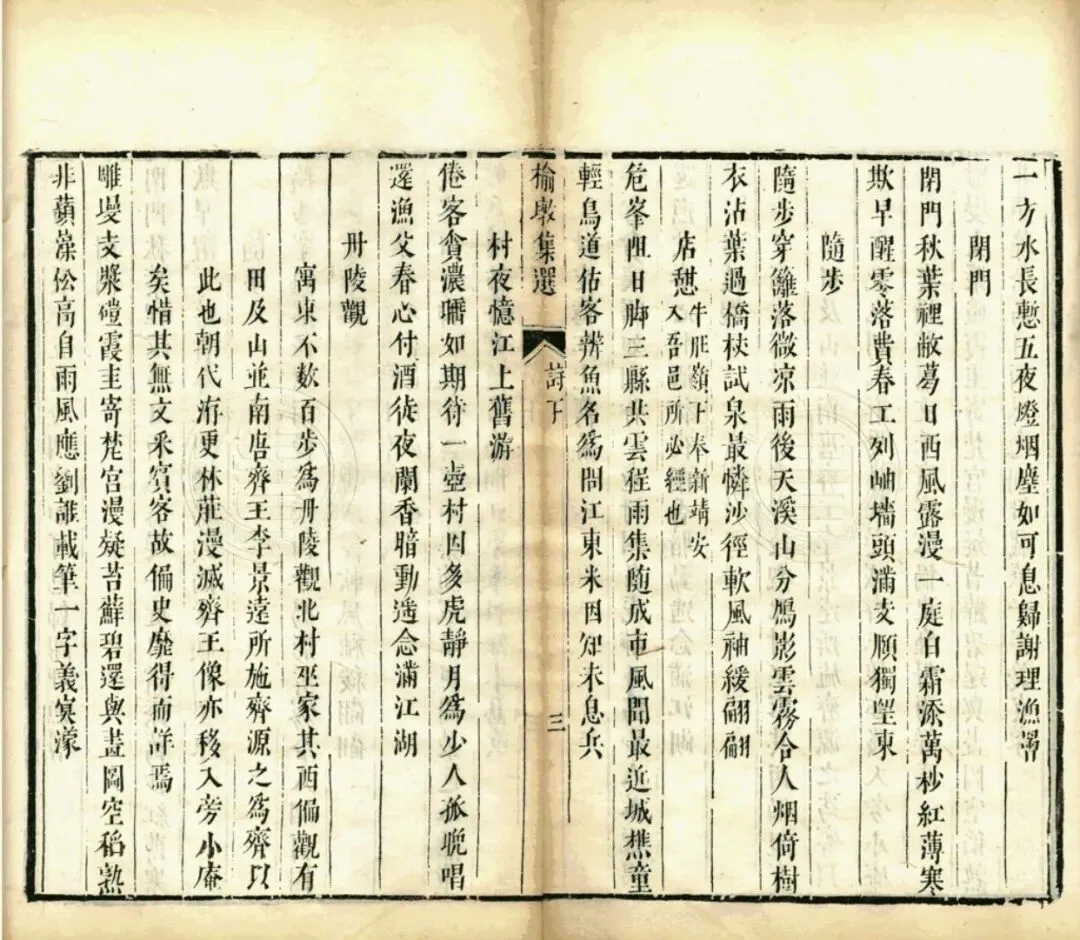 一方水長慙五夜燈烟塵如可息歸謝理漁罾
閉門
閉門秋葉裡敝葛日西風露漫一庭白霜添萬杪紅薄寒
欺早醒零落費春工列岫墻頭滿支頤獨朢東
隨步
隨步穿籬落微凉雨後天溪山分鳫影雲霧合人烟倚樹
衣沾葉過橋杖試泉最憐沙徑軟風袖緩翩翩
店憇
牛肝嶺下奉新靖安
入吾邑所必經也
危峯阻日脚三縣共雲程雨集随成市風聞最近城樵童
輕鳥道估客辨魚名為問江東米因知未息兵
榆墩集選
詩下
三
村夜憶江上舊游
倦客貪濃𤏡如期待一壺村因多虎靜月為少人孤晩唱
遲漁父春心付酒徒夜闌香暗動遙念滿江湖
丹陵觀
寓東不数百步為丹陵觀北村巫家其西偏觀有
田及山並南唐齊王李景遠所施齊源之為齊以
此也朝代洊更林莊漫滅齊王像亦移入旁小庵
矣惜其無文采賔客故偏史靡得而詳焉
雕墁支漿磑霞圭寄梵宮漫疑苔蘚碧還與畫圖空稻熟
非蘋藻松高自雨風應劉誰載筆一字義寞濛